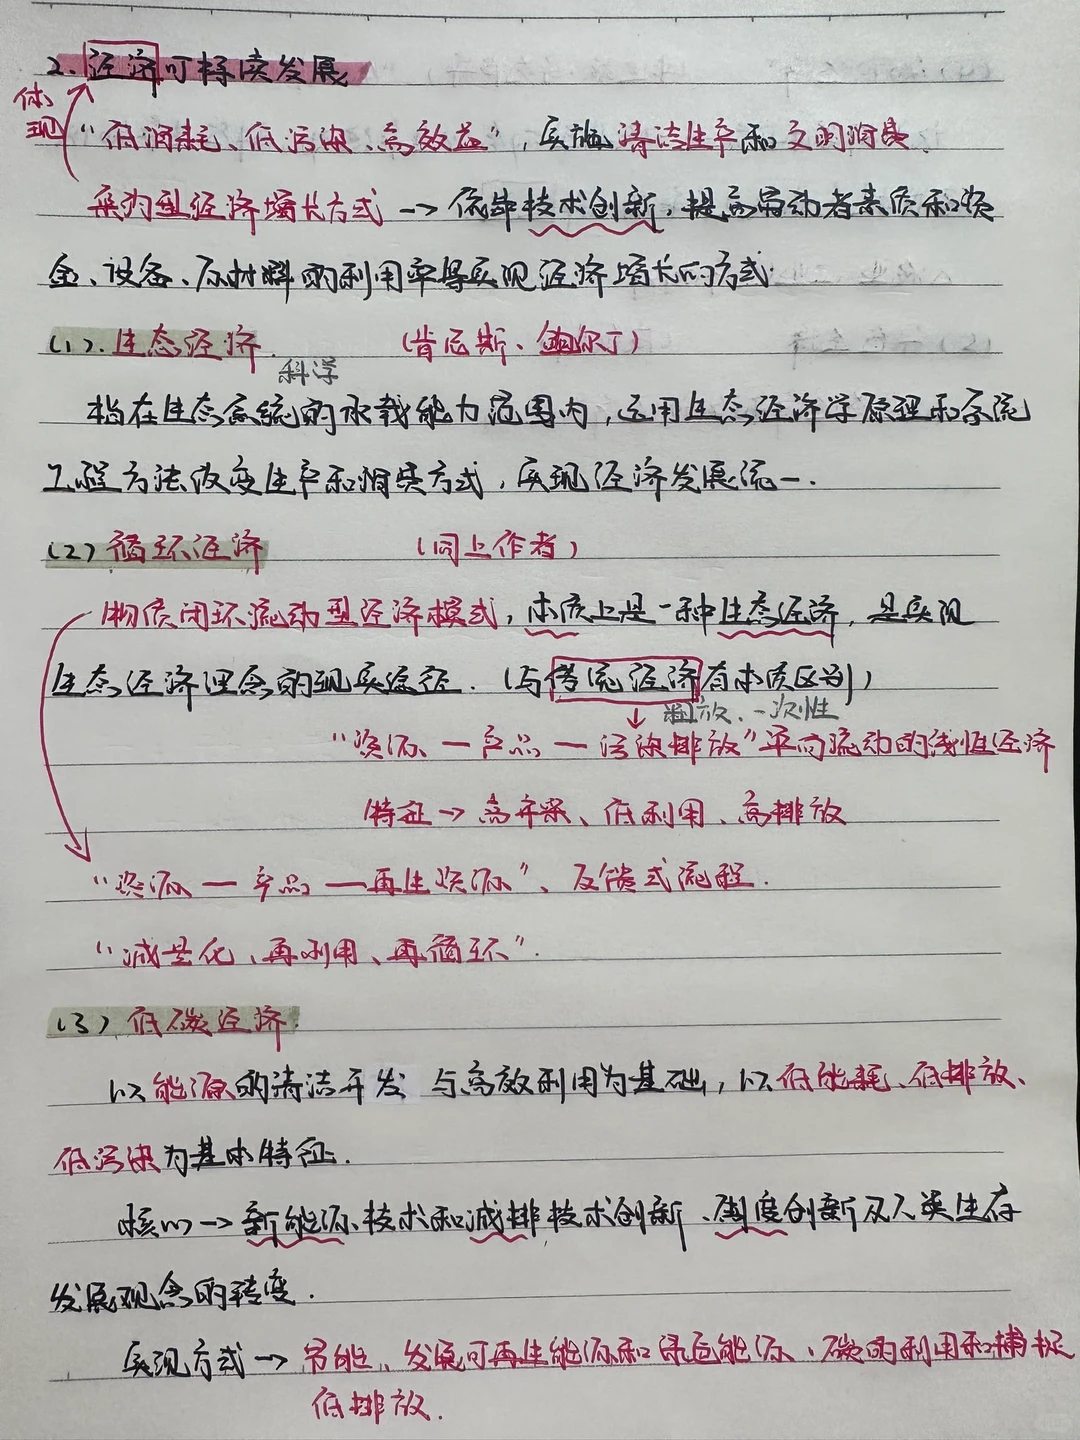 2.经济可持续发展
体现
“低消耗、低污染、高效益”,实施清洁生产和文明消费.
集约型经济增长方式→依靠技术创新,提高劳动者素质和资
金、设备、原材料的利用率等实现经济增长的方式.
(1).生态经济. (肯尼斯、鲍尔丁)
科学
指在生态系统的承载能力范围内,运用生态经济学原理和系统
工程方法改变生产和消费方式,实现经济发展统一.
(2)循环经济 (同上作者)
物质闭环流动型经济模式,本质上是一种生态经济,是实现
生态经济理念的现实途径.(与传统经济有本质区别)
粗放、一次性
“资源—产品—污染排放”单向流动的线性经济
特征→高开采、低利用、高排放
“资源—产品—再生资源”、反馈式流程.
“减量化、再利用、再循环”.
(3)低碳经济.
以能源的清洁开发与高效利用为基础,以低能耗、低排放、
低污染为基本特征.
核心→新能源技术和减排技术创新、制度创新及人类生存
发展观念的转变.
实现方式→节能、发展可再生能源和绿色能源、碳的利用和捕捉
低排放.